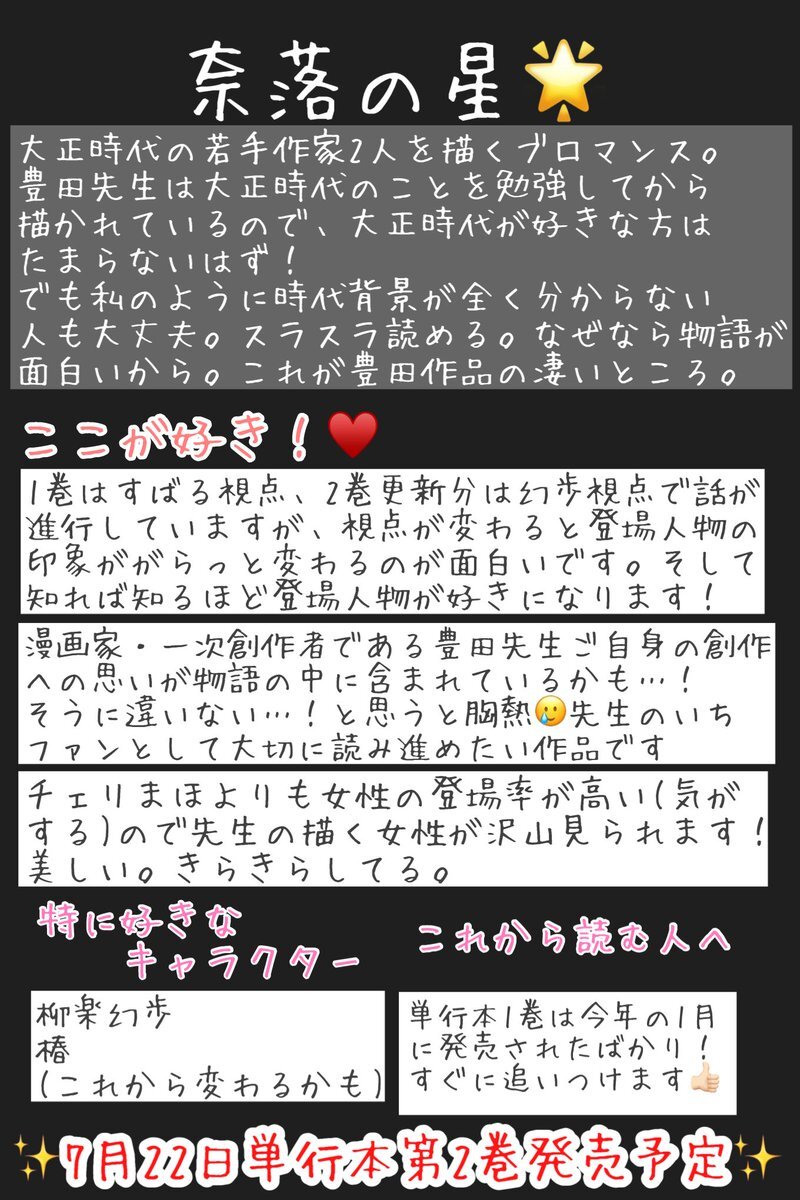 奈落の星🌟
大正時代の若手作家2人を描くブロマンス。
豊田先生は大正時代のことを勉強してから
描かれているので、大正時代が好きな方は
たまらないはず！
でも私のように時代背景が全く分からない
人も大丈夫。スラスラ読める。なぜなら物語が
面白いから。これが豊田作品の凄いところ。
ここが好き！♥️
1巻はすばる視点、2巻更新分は幻歩視点で話が
進行していますが、視点が変わると登場人物の
印象ががらっと変わるのが面白いです。そして
知れば知るほど登場人物が好きになります！
漫画家・一次創作者である豊田先生ご自身の創作
への思いが物語の中に含まれているかも…！
そうに違いない…！と思うと胸熱🥲先生のいち
ファンとして大切に読み進めたい作品です
チェリまほよりも女性の登場率が高い(気が
する)ので先生の描く女性が沢山見られます！
美しい。きらきらしてる。
特に好きな
キャラクター
柳楽幻歩
椿
(これから変わるかも)
これから読む人へ
単行本1巻は今年の1月
に発売されたばかり！
すぐに追いつけます👍🏻
✨7月22日単行本第2巻発売予定✨